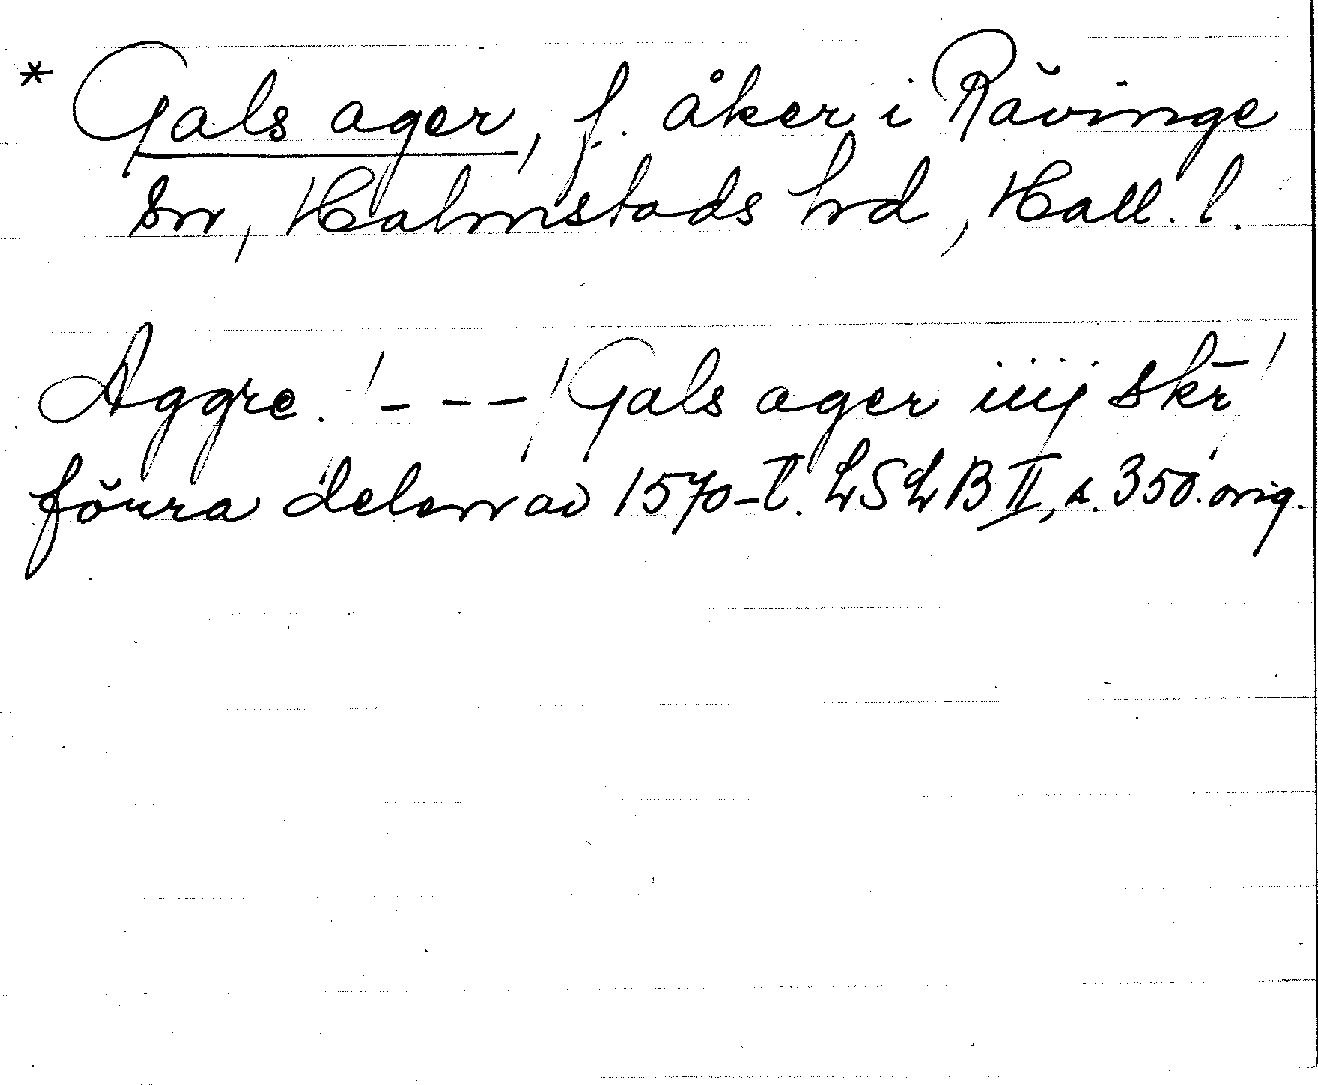 * Gals ager, f. åker i Rävinge
sn, Halmstads hrd, Hall. l.
Aggre. ' - - - ' Gals ager iiij skr̄ '
förra delen av 1570-t. LSLB II, s. 350. orig.